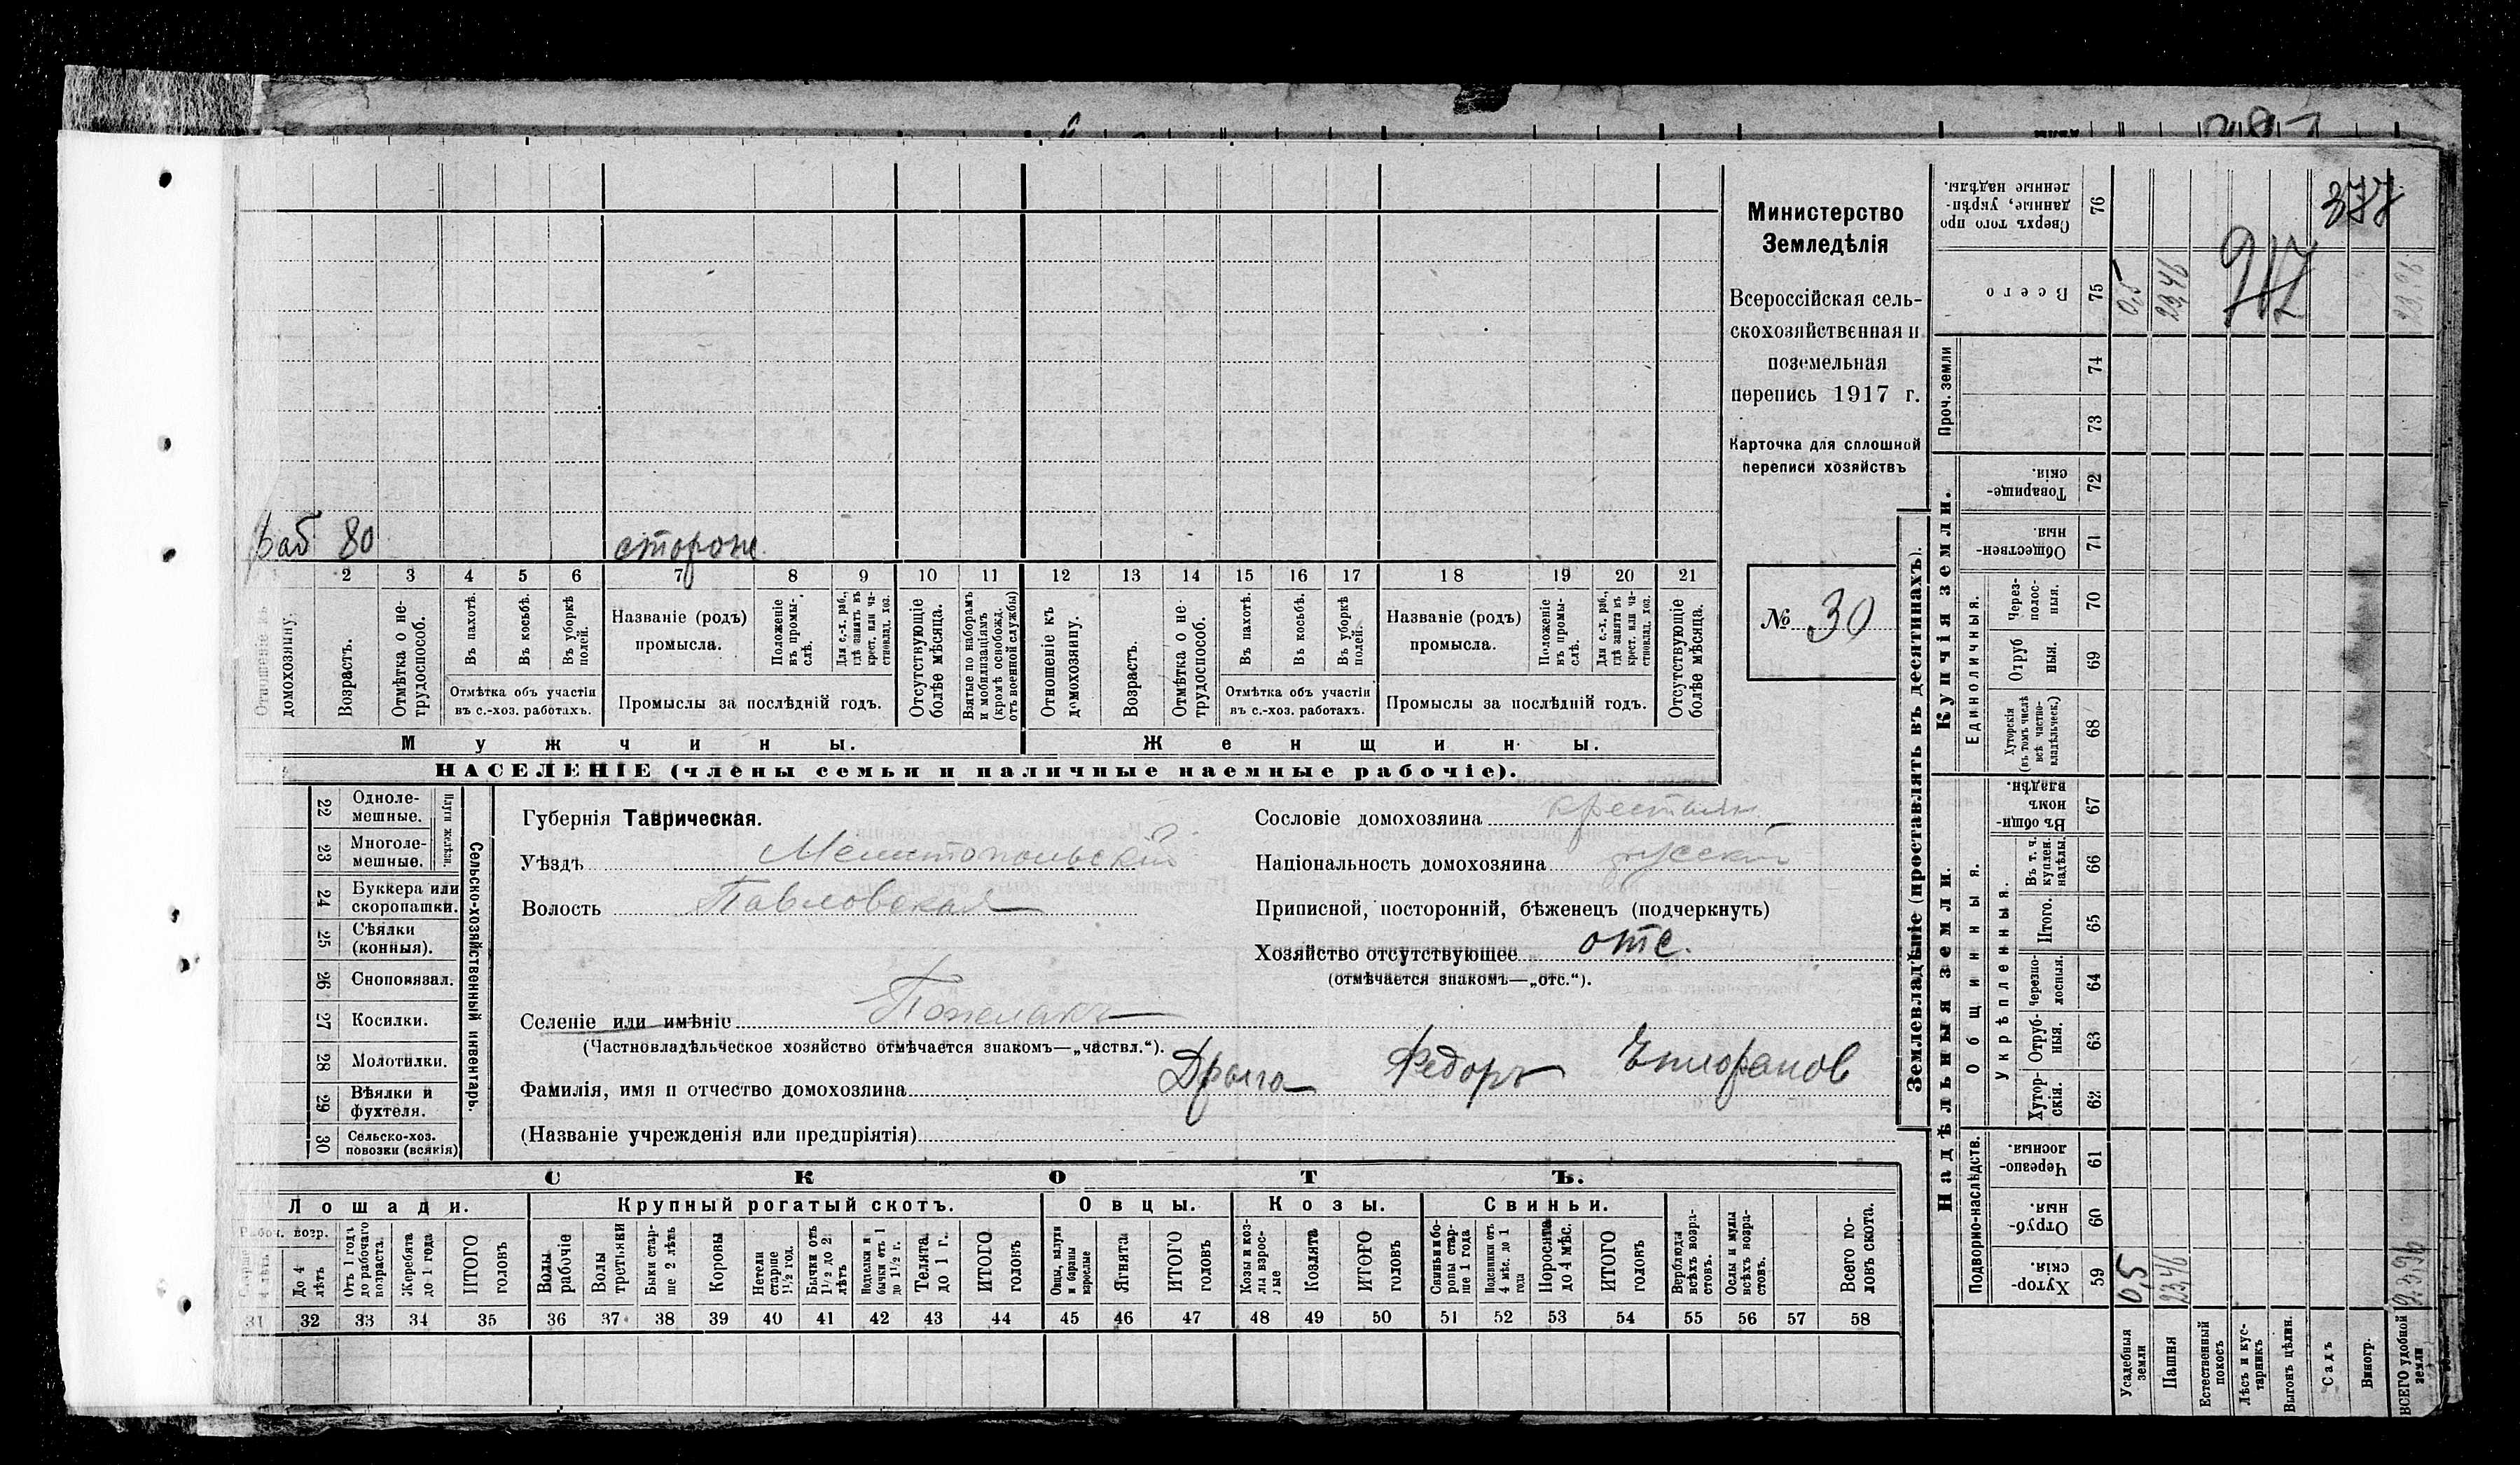 377
Министерство
Земледѣлія
Всероссійская сель-
скохозяйственная и
поземельная
перепись 1917 г.
Карточка для сплошной
переписи хозяйствъ
№ 30
80 стороне
2 3 4 5 6 7 8 9 10 11 12 13 14 15 16 17 18 19 20 21
Отношеніе къ домохозяину.
Возрастъ.
Отмѣтка о не-трудоспособ.
Въ пахотѣ.
Въ косьбѣ.
Въ уборкѣ полей.
Отмѣтка объ участіи
въ с.-хоз. работахъ.
Названіе (родъ)
промысла.
Положеніе въ промы-слѣ.
Для с.-х. раб., гдѣ занятъ въ крест. или ча-стновлад. хоз.
Промыслы за послѣдній годъ.
Отсутствующіе болѣе мѣсяца.
Взятые по наборамъ и мобилизаціямъ (кромѣ освобожд. отъ военной службы)
Отношеніе къ домохозяину.
Возрастъ.
Отмѣтка о не-трудоспособ.
Въ пахотѣ.
Въ косьбѣ.
Въ уборкѣ полей.
Отмѣтка объ участіи
въ с.-хоз. работахъ.
Названіе (родъ)
промысла.
Положеніе въ промы-слѣ.
Для с.-х. раб., гдѣ занята въ крест. или ча-стновлад. хоз.
Промыслы за послѣдній годъ.
Отсутствующіе болѣе мѣсяца.
Мужчины. Женщины.
НАСЕЛЕНІЕ (члены семьи и наличные наемные рабочіе).
22 Одноле-мешные.
23 Многоле-мешные.
Плуги желѣзн.
24 Буккера или скоропашки.
25 Сѣялки (конныя).
26 Сноповязал.
27 Косилки.
28 Молотилки.
29 Вѣялки и фухтеля.
30 Сельско-хоз. повозки (всякія)
Сельско-хозяйственный инвентарь.
Губернія Таврическая.
Уѣздъ Мелитопольскій
Волость Павловская
Сословіе домохозяина крестьян
Національность домохозяина русскій
Приписной, посторонній, бѣженецъ (подчеркнуть)
Хозяйство отсутствующее отс.
(отмѣчается знакомъ—„отс.“).
Селеніе или имѣніе
(Частновладѣльческое хозяйство отмѣчается знакомъ—„частвл.“).
Фамилія, имя и отчество домохозяина Федоръ
(Названіе учрежденія или предпріятія)
СКОТЪ.
Лошади. Крупный рогатый скотъ. Овцы. Козы. Свиньи.
Рабоч. возр.
До 4 лѣтъ
Отъ 1 года до рабочаго возраста.
Жеребята до 1 года
ИТОГО головъ
Волы рабочіе
Волы третьяки
Быки стар-ше 2 лѣтъ
Коровы
Нетели старше 1½ год.
Бычки отъ 1½ до 2 лѣтъ
Подтелки и бычки отъ 1 до 1½ г.
Телята до 1 г.
ИТОГО головъ
Овцы, валухи и бараны взрослые
Ягнята
ИТОГО головъ
Козы и коз-лы взрос-лые
Козлята
ИТОГО головъ
Свиньи и бо-ровы стар-ше 1 года
Подсвинки отъ 4 мѣс. до 1 года
Поросята до 4 мѣс.
ИТОГО головъ
Верблюды всѣхъ возра-стовъ.
Ослы и мулы всѣхъ возра-стовъ.
Всего го-ловъ скота.
31 32 33 34 35 36 37 38 39 40 41 42 43 44 45 46 47 48 49 50 51 52 53 54 55 56 57 58
Землевладѣніе (проставлять въ десятинахъ).
Сверхъ того про данные, укрѣп-ленные надѣлы. 76
Всего 75 0,5 23,46 23,96
Проч. земли
74
73
Купчія земли.
Товарище-скія. 72
Обществен-ныя. 71
Единоличныя.
Через-полос-ныя. 70
Отруб ныя. 69
Хуторскія (въ томъ числѣ всѣ частно-владѣльческ.) 68
Надѣльныя земли.
Общинныя.
Въ общи номъ владѣн. 67
Укрѣпленныя.
Въ т. ч. куплен. надѣлы. 66
Итого. 65
Черезпо-лосныя. 64
Отруб-ныя. 63
Хутор-скія. 62
Подворно-наслѣдств.
Черезпо-лосныя. 61
Отруб-ныя. 60
Хутор-скія. 59 0,5 23,46 23,96
Усадебныя земли
Пашня
Естественный покосъ
Лѣсъ и кус-тарникъ
Выгонъ цѣлин.
Садъ
Виногр.
ВСЕГО удобной земли